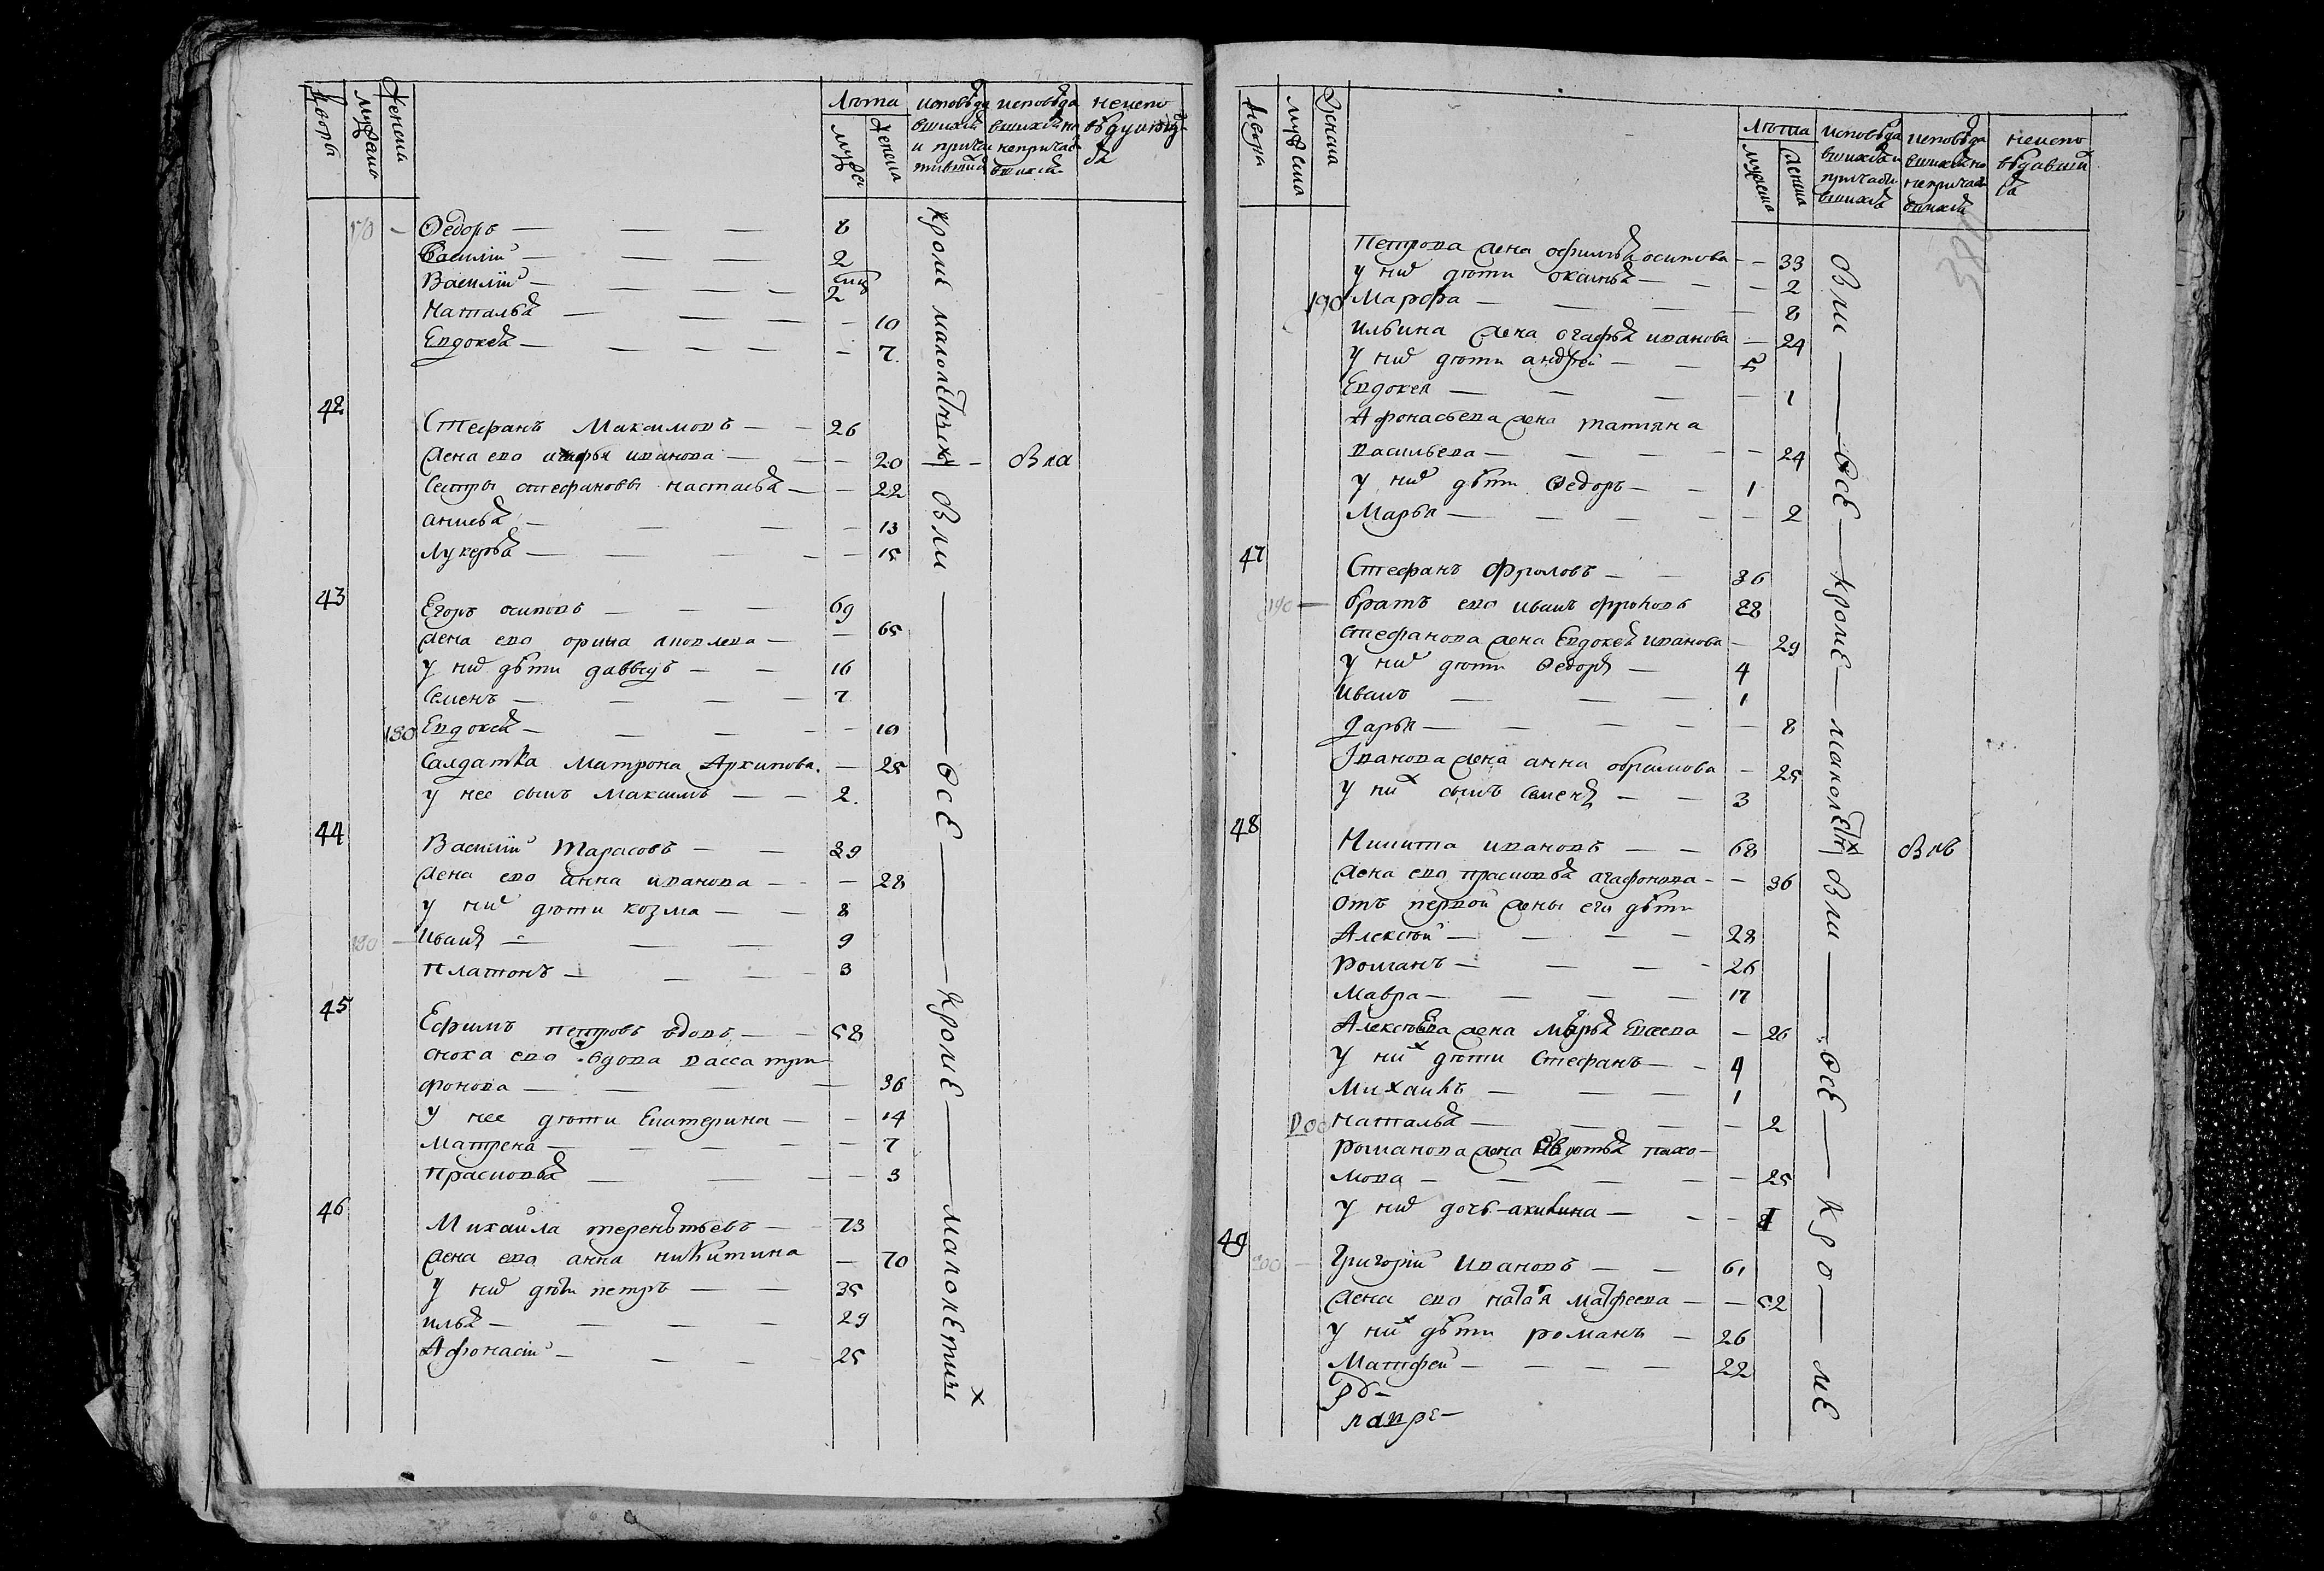 Дворы
Мужеска
Женска
Лѣта
мужес
женска
исповѣда
вшихся
и прича
тившихся
исповѣда
вшихся но
непричас
вшихся
неиспо
вѣдующих
ся
170 — Ѳедоръ — — — 8
Василій — — — 2
Василій — — — 2
Наталья — — — — 10
Евдокея — — — — — 7
42
Стефанъ Максимовъ — — 26
Жена ево агафья иванова — — 20 — вла
Сестры стефановы настасья — — 22
анисья — — — — 13
Лукерья — — — — 15
43
Егоръ осиповъ — — — 69
жена ево орина яковлева — — 65
у них дѣти давыдъ — — 16
Семенъ — — — — 7
180 Евдокея — — — — 10
Салдатка Матрона Архипова. — 25
у нее сынъ Максимъ — — 2.
44
Василій Тарасовъ — — 29
Жена ево анна иванова — — 28
у них дѣти козма — — 8
180 — Иванъ — — — 9
Платонъ — — — 3
45
Ефимъ петровъ вдовъ — — 58
сноха ево вдова васса три
фонова — — — — 36
у нее дѣти Екатерина — — 14
Матрена — — — — 7
Прасковья — — — 3
46
Михайла терентьевъ — 73
Жена ево анна никитина — 70
у них дѣти петръ — — 35
илья — — — — 29
Афонасій — — — 25
кроме малолѣтныхъ вли — всѣ — кромѣ — малолетних
Двора
Мужеска
Женска
Лѣта
мужеска
женска
исповѣда
вшихся и
причасти
вшихся
исповѣда
вшихся но
непричас
вшихся
неиспо
вѣдавших
ся
Петрова жена офимья осипова — — 33
у них дѣти оксинья — — — 2
190 Марфа — — — 8
Ильина жена агафья иванова — 24
у них дѣти андрей — — 5
Евдокея — — — — 1
Афонасьева жена татияна
васильева — — — — — 24
у них дѣти Ѳедоръ — — 1
Марья — — — — — 2
47
Стефанъ Фроловъ — — 36
190 — братъ ево иванъ фроловъ 28
стефанова жена Евдокея иванова — 29
у них дѣти Ѳедоръ — 4
Иванъ — — — 1
Дарья — — — — — 8
Иванова жена анна обрамова — 25
у них сынъ Семенъ — — 3
48
Никита ивановъ — — 68 влв
Жена ево прасковья агафонова — — 36
отъ первой жены его дѣти
Алексѣй — — — — 28
Романъ — — — — 26
Мавра — — — — 17
Алексѣева жена марья Евсеева — 26
у них дѣти Стефанъ — — 4
Михаилъ — — — 1
200 наталья — — — — 2
романова жена Авдотья пахо—
мова — — — — — 25
у них дочь акилина — — — 1
49
200 — Григорій Ивановъ — — 61
Жена ево наталья Матфеева — — 52
у них дѣти романъ — 26
Матфей — — — — 22
вли — всѣ — кромѣ — малолѣтних вли — всѣ — кро — мѣ